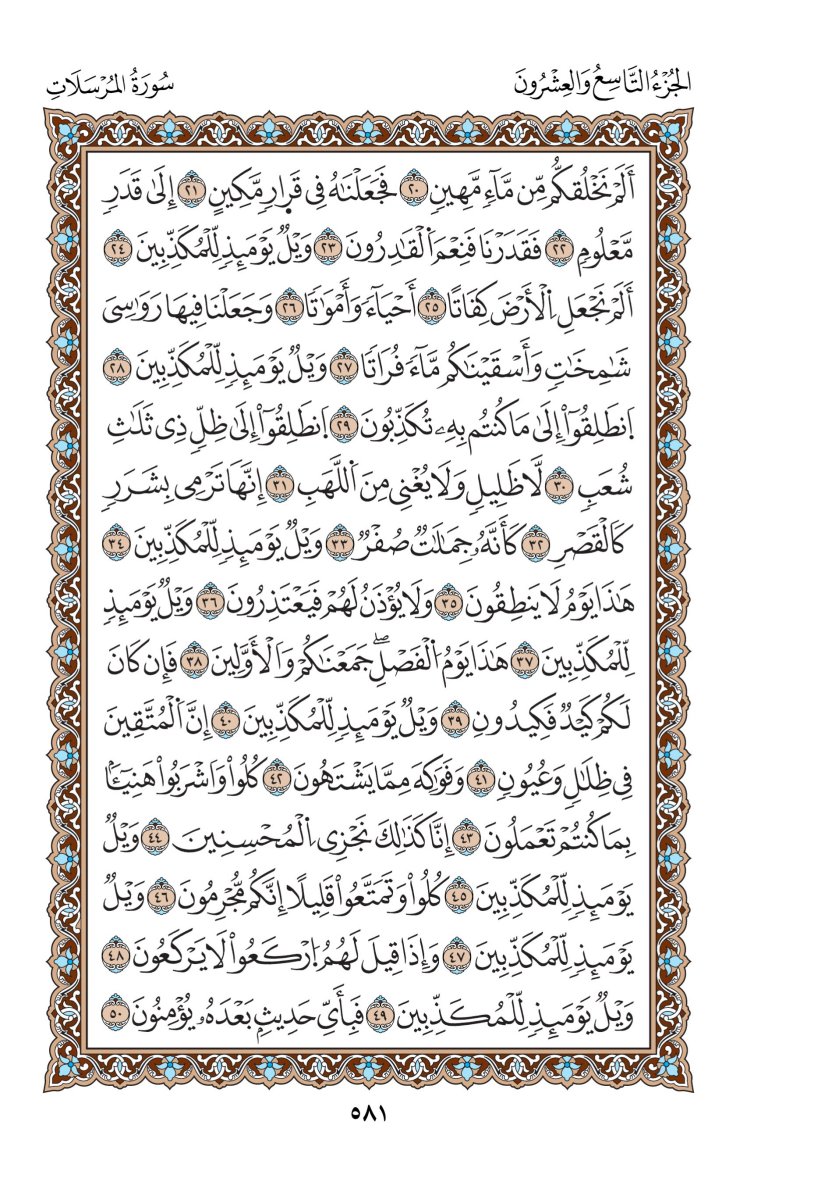 الجُزْءُ التَّاسِعُ وَالعِشْرُونَ
سُورَةُ المُرْسَلَاتِ
أَلَمْ نَخْلُقكُّم مِّن مَّآءٍ مَّهِينٍ ٢٠ فَجَعَلْنَٰهُ فِى قَرَارٍ مَّكِينٍ ٢١ إِلَىٰ قَدَرٍ
مَّعْلُومٍ ٢٢ فَقَدَرْنَا فَنِعْمَ ٱلْقَٰدِرُونَ ٢٣ وَيْلٌ يَوْمَئِذٍ لِّلْمُكَذِّبِينَ ٢٤
أَلَمْ نَجْعَلِ ٱلْأَرْضَ كِفَاتًا ٢٥ أَحْيَآءً وَأَمْوَٰتًا ٢٦ وَجَعَلْنَا فِيهَا رَوَٰسِىَ
شَٰمِخَٰتٍ وَأَسْقَيْنَٰكُم مَّآءً فُرَاتًا ٢٧ وَيْلٌ يَوْمَئِذٍ لِّلْمُكَذِّبِينَ ٢٨
ٱنطَلِقُوٓا۟ إِلَىٰ مَا كُنتُم بِهِۦ تُكَذِّبُونَ ٢٩ ٱنطَلِقُوٓا۟ إِلَىٰ ظِلٍّ ذِى ثَلَٰثِ
شُعَبٍ ٣٠ لَّا ظَلِيلٍ وَلَا يُغْنِى مِنَ ٱللَّهَبِ ٣١ إِنَّهَا تَرْمِى بِشَرَرٍ
كَٱلْقَصْرِ ٣٢ كَأَنَّهُۥ جِمَٰلَٰتٌ صُفْرٌ ٣٣ وَيْلٌ يَوْمَئِذٍ لِّلْمُكَذِّبِينَ ٣٤
هَٰذَا يَوْمُ لَا يَنطِقُونَ ٣٥ وَلَا يُؤْذَنُ لَهُمْ فَيَعْتَذِرُونَ ٣٦ وَيْلٌ يَوْمَئِذٍ
لِّلْمُكَذِّبِينَ ٣٧ هَٰذَا يَوْمُ ٱلْفَصْلِۖ جَمَعْنَٰكُمْ وَٱلْأَوَّلِينَ ٣٨ فَإِن كَانَ
لَكُمْ كَيْدٌ فَكِيدُونِ ٣٩ وَيْلٌ يَوْمَئِذٍ لِّلْمُكَذِّبِينَ ٤٠ إِنَّ ٱلْمُتَّقِينَ
فِى ظِلَٰلٍ وَعُيُونٍ ٤١ وَفَوَٰكِهَ مِمَّا يَشْتَهُونَ ٤٢ كُلُوا۟ وَٱشْرَبُوا۟ هَنِيٓـًٔا
بِمَا كُنتُمْ تَعْمَلُونَ ٤٣ إِنَّا كَذَٰلِكَ نَجْزِى ٱلْمُحْسِنِينَ ٤٤ وَيْلٌ
يَوْمَئِذٍ لِّلْمُكَذِّبِينَ ٤٥ كُلُوا۟ وَتَمَتَّعُوا۟ قَلِيلًا إِنَّكُم مُّجْرِمُونَ ٤٦ وَيْلٌ
يَوْمَئِذٍ لِّلْمُكَذِّبِينَ ٤٧ وَإِذَا قِيلَ لَهُمُ ٱرْكَعُوا۟ لَا يَرْكَعُونَ ٤٨
وَيْلٌ يَوْمَئِذٍ لِّلْمُكَذِّبِينَ ٤٩ فَبِأَىِّ حَدِيثٍۭ بَعْدَهُۥ يُؤْمِنُونَ ٥٠
٥٨١